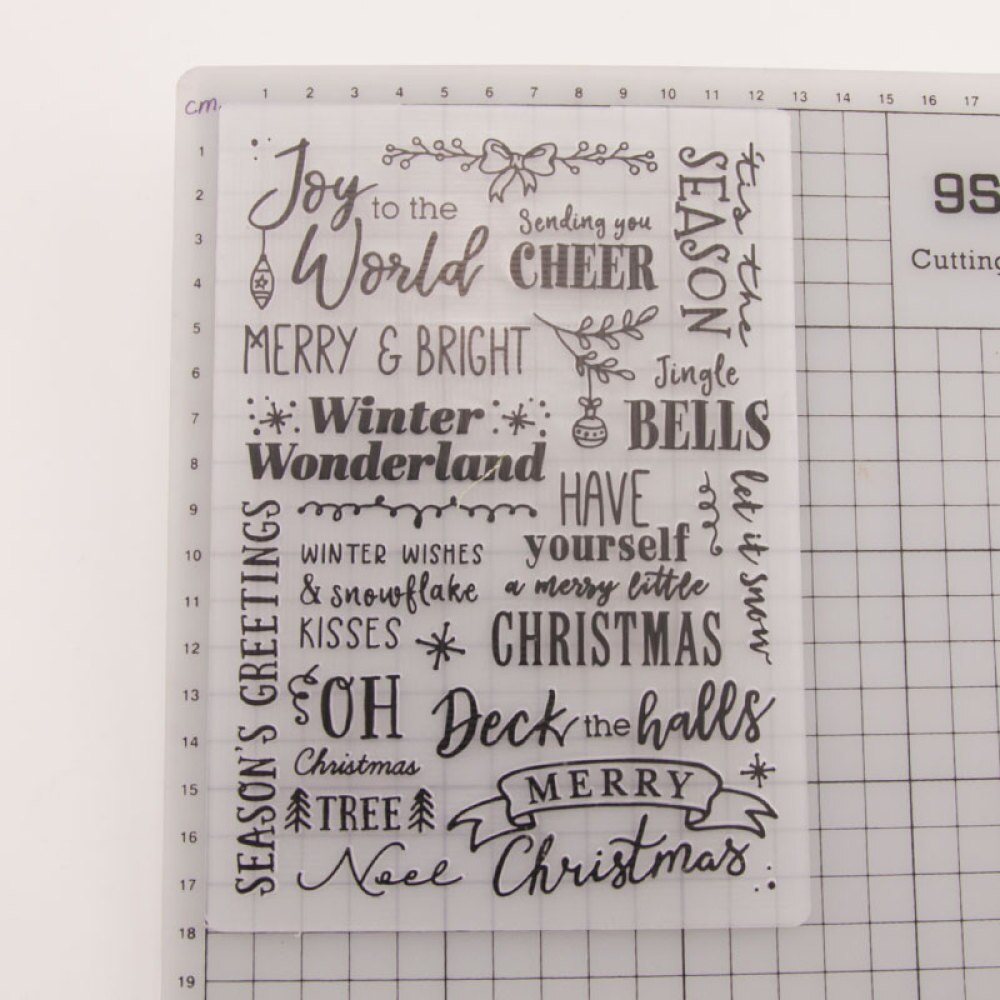 cm.
1 2 3 4 5 6 7 8 9 10 11 12 13 14 15 16 17
1
2
3
4
5
6
7
8
9
10
11
12
13
14
15
16
17
18
19
Joy
to the
World
Sending you
CHEER
'tis the
SEASON
MERRY & BRIGHT
Jingle
BELLS
Winter
Wonderland
HAVE
yourself
a merry little
CHRISTMAS
let it snow
WINTER WISHES
& snowflake
KISSES
SEASON'S GREETINGS
OH
Christmas
TREE
Deck the halls
MERRY
Christmas
Noel
9S
Cutting